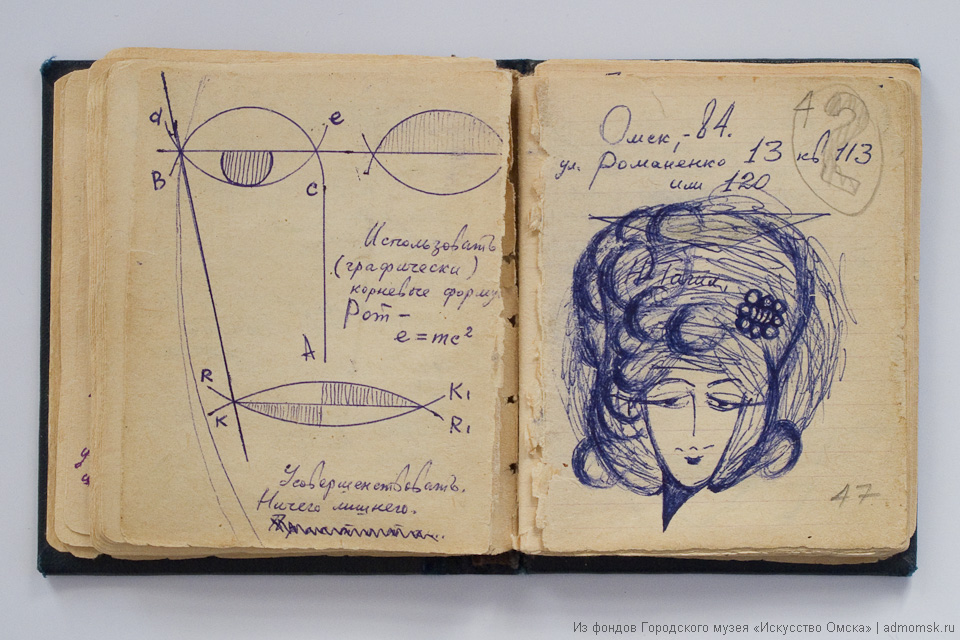 d
e
B
C
Использовать
(графически)
корневые форму
Рот –
e = mc²
A
R
K
K₁
R₁
Усовершенствовать.
Ничего лишнего.
у
а
4 2
Омск, - 84.
ул. Романенко 13 кв 113
или 120
47
Из фондов Городского музея «Искусство Омска» | admomsk.ru